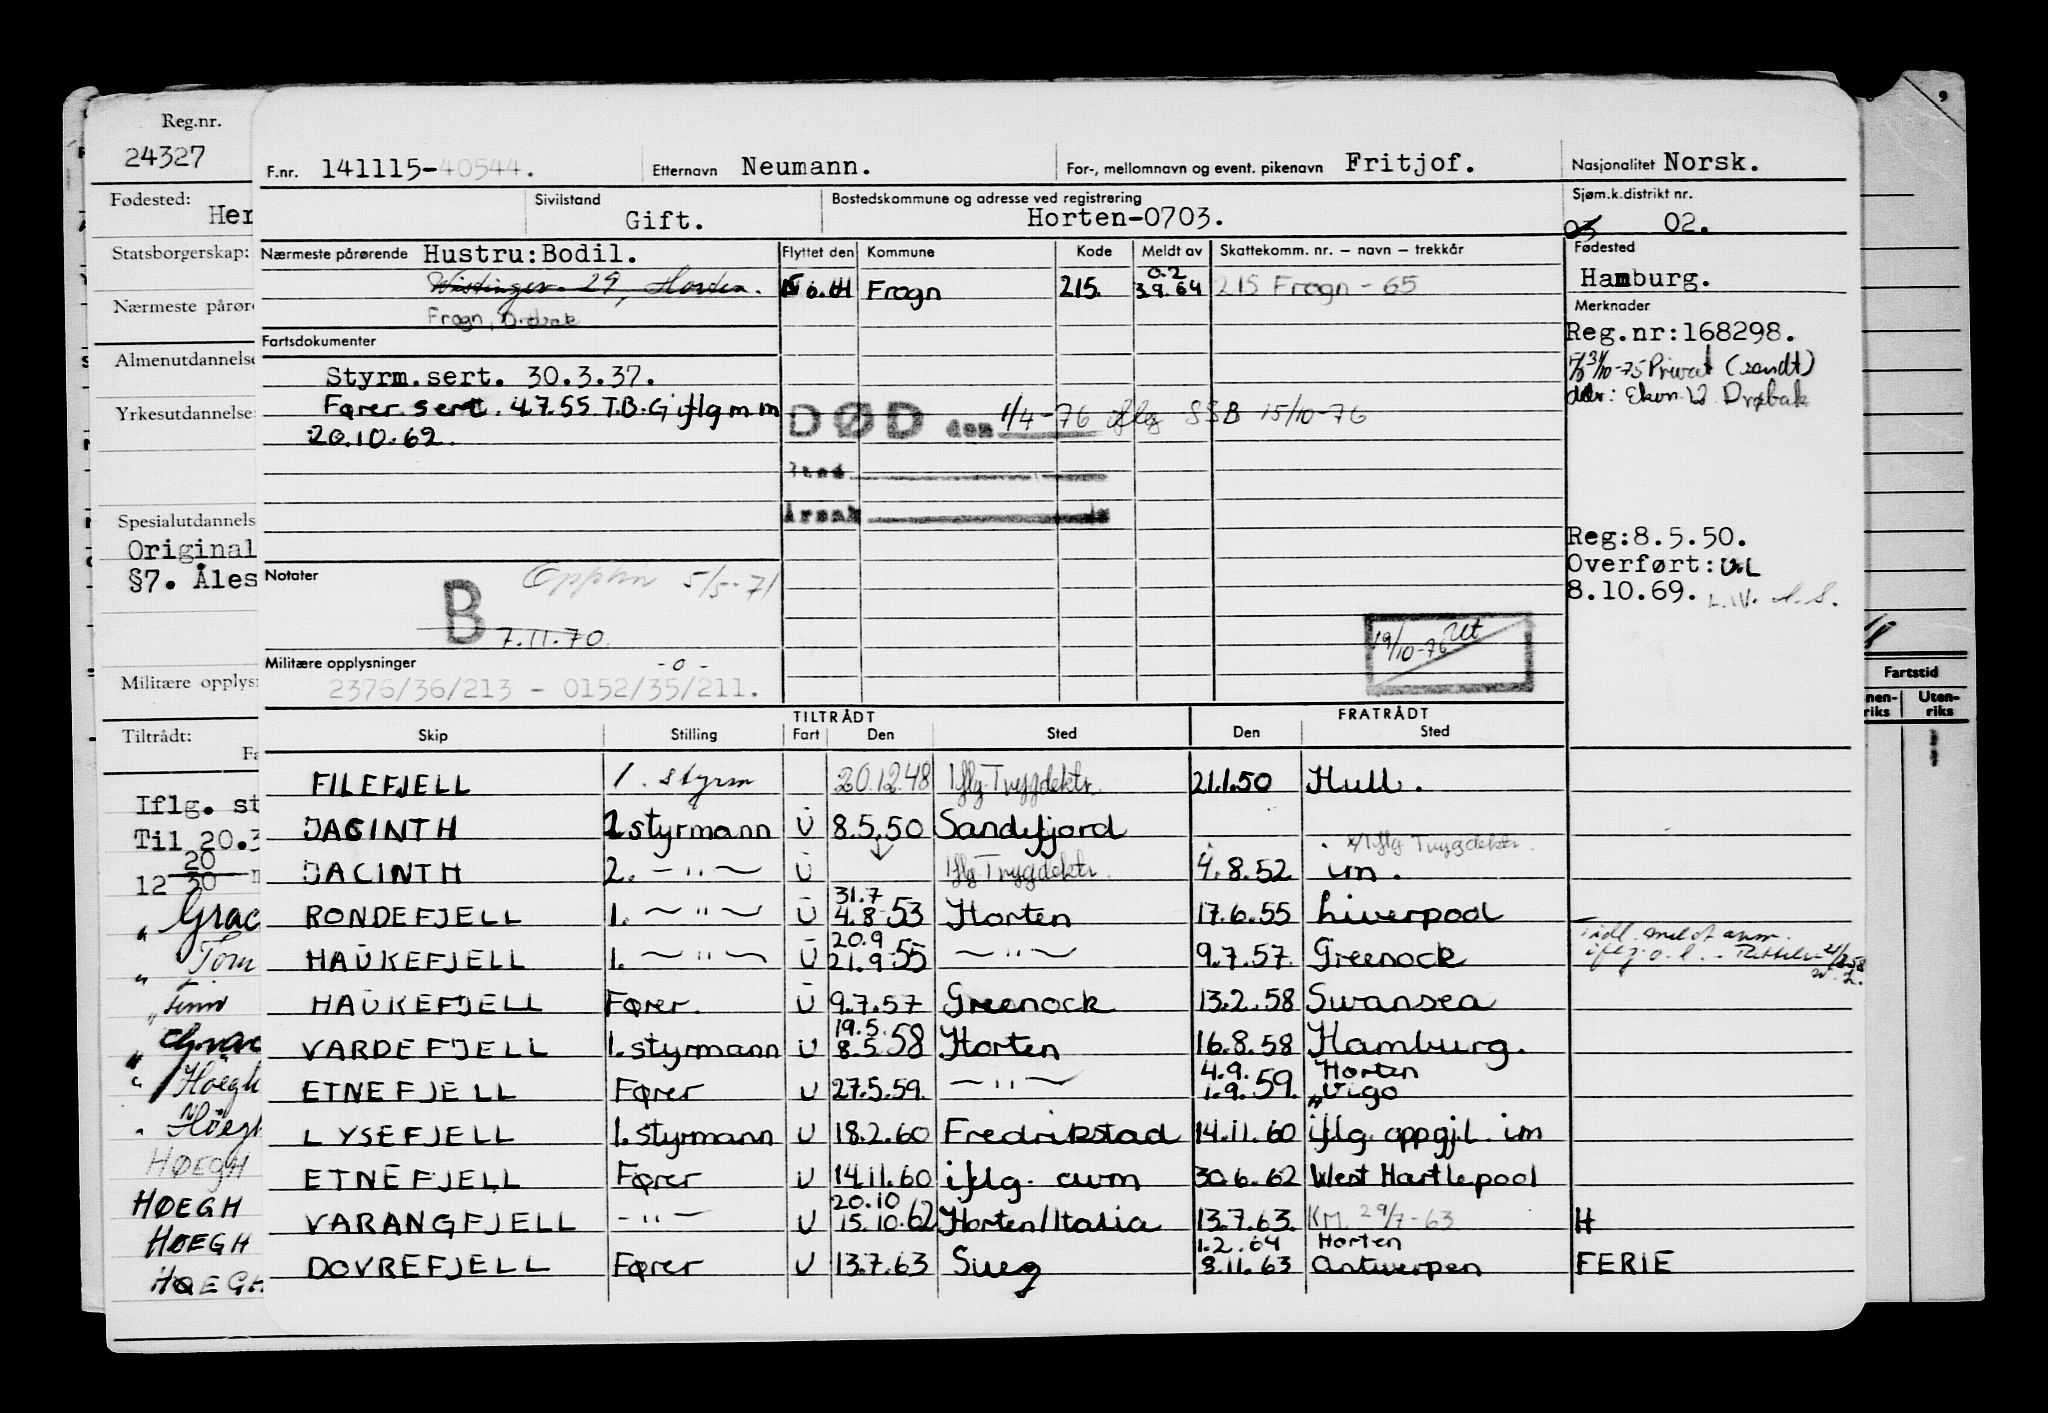 Reg.nr.
24327
Fødested:
Her
Statsborgerskap:
Nærmeste pårøre
Almenutdannelse
Yrkesutdannelse:
Spesialutdannels
Original
§7. Åles
Militære opplys
Tiltrådt:
Iflg. st
Til 20.3
12 20/30
" Grac
" Tom
HØEGH
HØEGH
HØEGH
HØEGH
F.nr. 141115-40544.
Etternavn Neumann.
For-, mellomnavn og event. pikenavn Fritjof.
Nasjonalitet Norsk.
Sivilstand
Gift.
Bostedskommune og adresse ved registrering
Horten-0703.
Sjøm.k.distrikt nr.
03 02.
Nærmeste pårørende Hustru:Bodil.
29, Horten.
Frogn, Drøbak
Flyttet den Kommune Kode Meldt av Skattekomm. nr. – navn – trekkår
Frogn 215. 0.2 3.9.64 215 Frogn - 65
Fødested
Hamburg.
Merknader
Reg.nr:168298.
31/10-75 Privat (sendt)
adr: Drøbak
Fartsdokumenter
Styrm.sert. 30.3.37.
Fører sert. 4.7.55 T.B.G iflg m m
20.10.62.
DØD den 1/4-76 iflg SSB 15/10-76
Sted
Årsak
Reg:8.5.50.
Overført:
8.10.69.
Notater
B 7.11.70.
5/5-71
19/10-76 Ut
Militære opplysninger -0-
2376/36/213 - 0152/35/211.
TILTRÅDT FRATRÅDT
Skip Stilling Fart Den Sted Den Sted
FILEFJELL 1. styrm 20.12.48 Iflg. Trygdektr. 21.1.50 Hull.
JACINTH 2 styrmann U 8.5.50 Sandefjord
x/Iflg Trygdektr.
JACINTH 2. -"- U Iflg Trygdektr. 4.8.52 im.
RONDEFJELL 1. -"- U 31.7 4.8.53 Horten 17.6.55 Liverpool
HAUKEFJELL 1. -"- U 20.9 21.9.55 -"- 9.7.57. Greenock
HAUKEFJELL Fører. U 9.7.57 Greenock 13.2.58 Swansea
VARDEFJELL 1. styrmann U 19.5. 8.5.58 Horten 16.8.58 Hamburg.
ETNEFJELL Fører U 27.5.59. -"- 4.9. 1.9.59. Horten Vigo
LYSEFJELL 1. styrmann U 18.2.60 Fredrikstad 14.11.60 iflg. oppgj.l. im
ETNEFJELL Fører U 14.11.60 iflg. avm 30.6.62 West Hartlepool
VARANGFJELL -"- U 20.10 15.10.62 Horten/Italia 13.7.63. KM. 29/7-63 H
DOVREFJELL Fører U 13.7.63 Sueg 1.2.64 8.11.63 Horten Antwerpen FERIE
Fartstid
nen-
riks
Uten-
riks